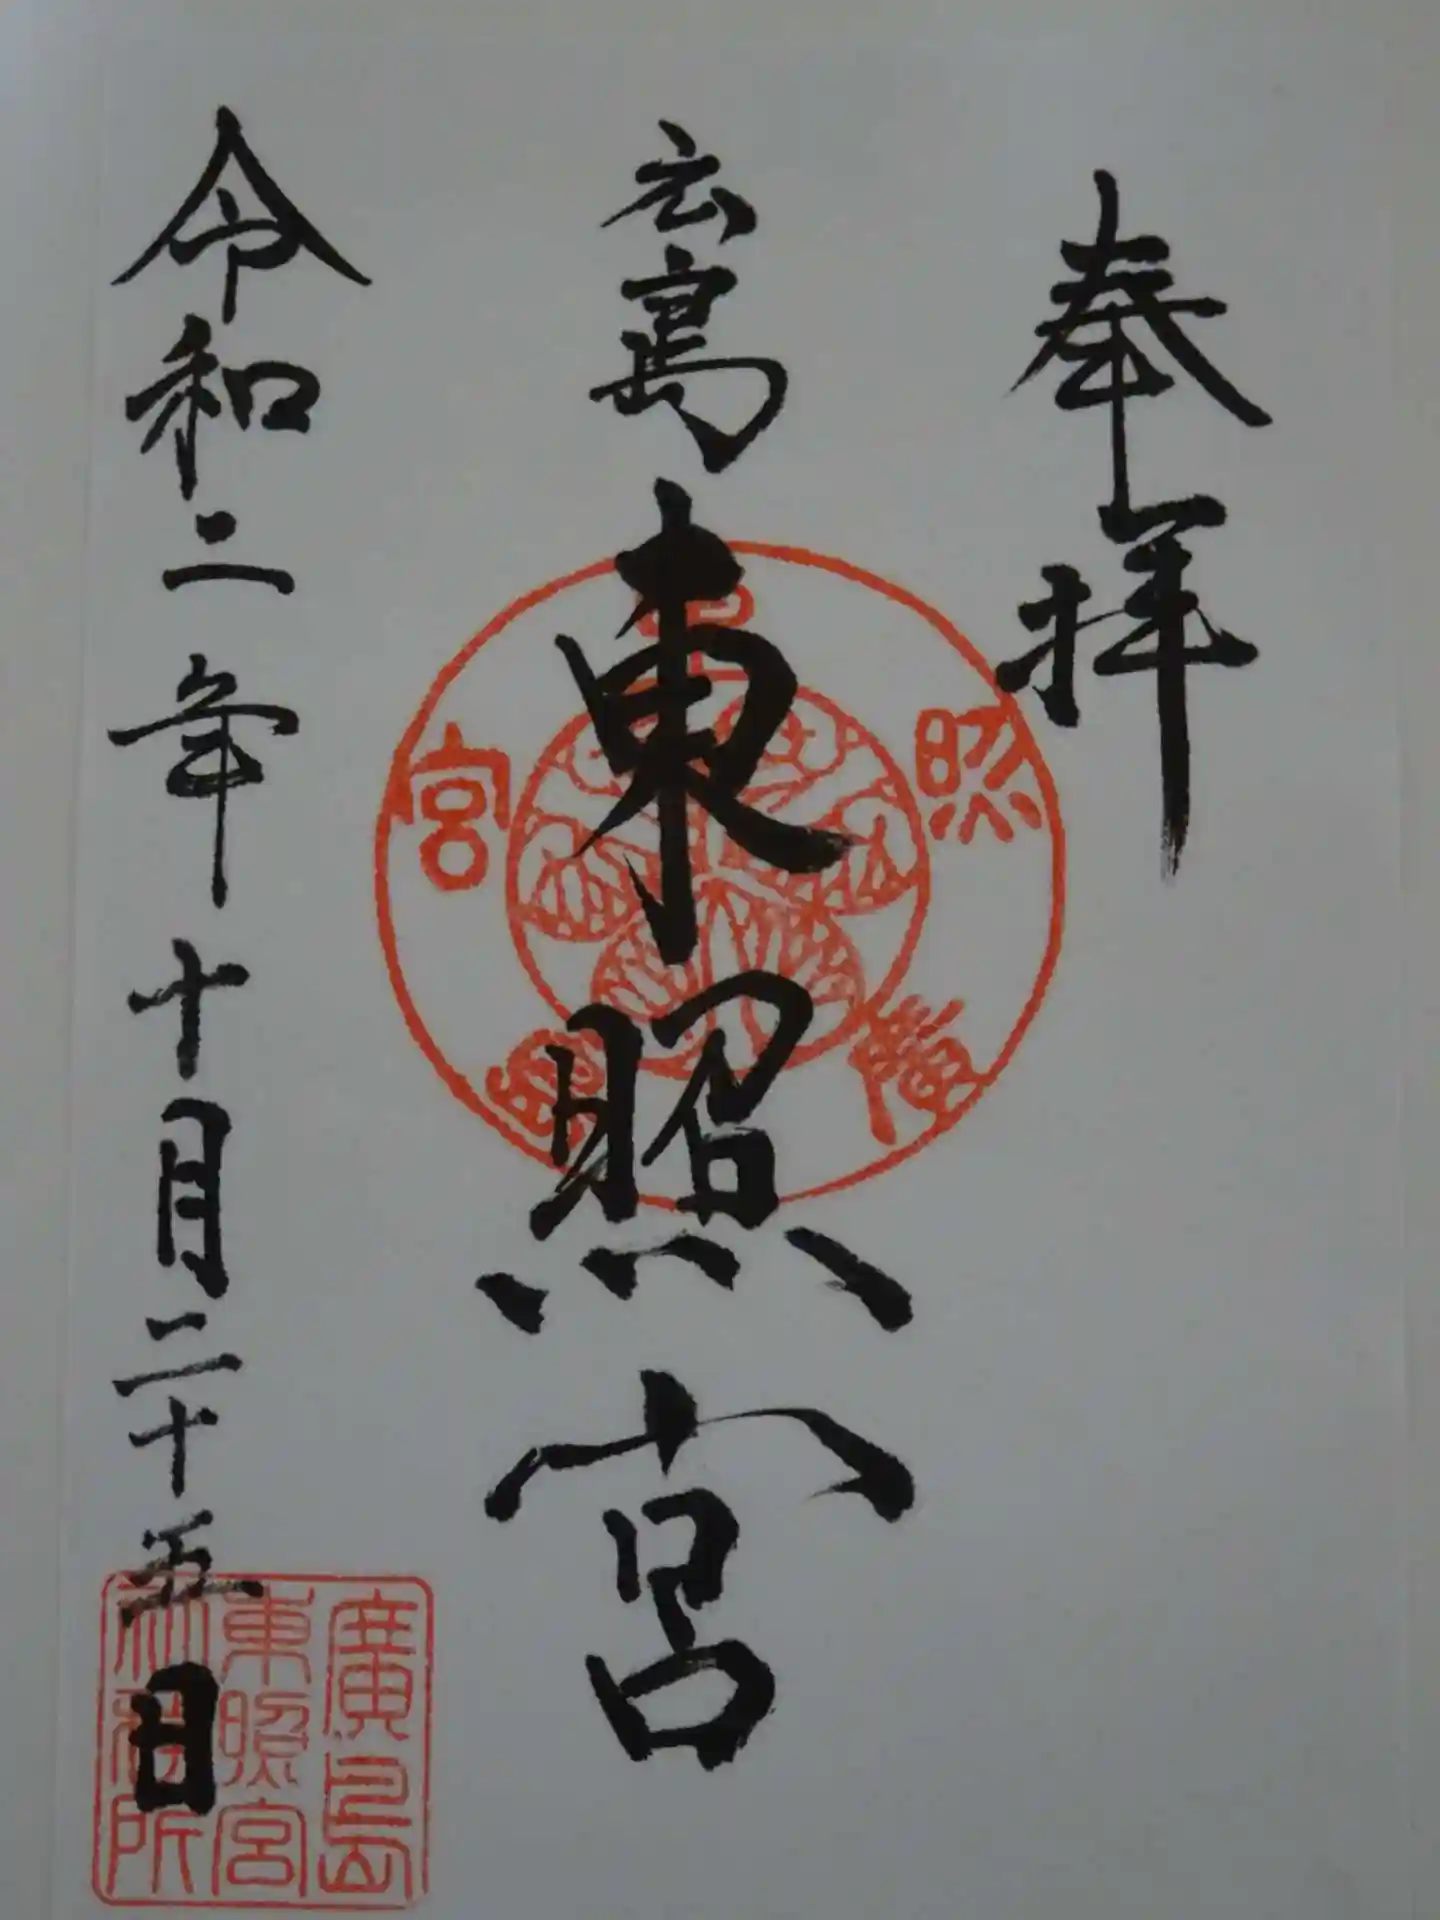 奉拝
広島東照宮
令和二年十月二十五日
東照宮廣島
廣島
東照宮
社務所